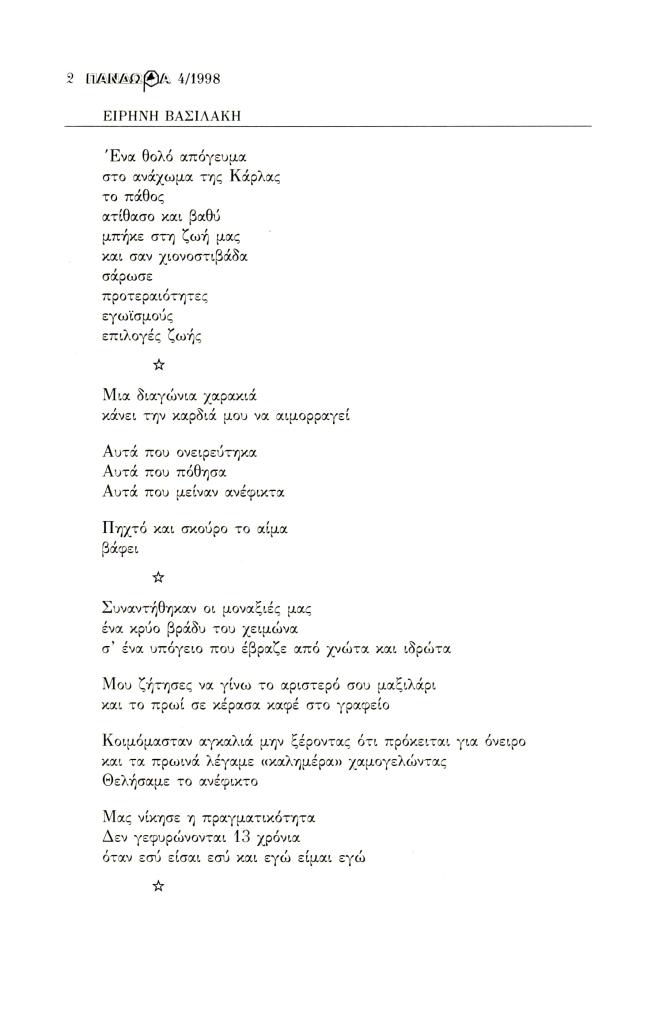 2 ΠΑΝΔΩΡΑ 4/1998
ΕΙΡΗΝΗ ΒΑΣΙΛΑΚΗ
Ένα θολό απόγευμα
στο ανάχωμα της Κάρλας
το πάθος
ατίθασο και βαθύ
μπήκε στη ζωή μας
και σαν χιονοστιβάδα
σάρωσε
προτεραιότητες
εγωϊσμούς
επιλογές ζωής
☆
Μια διαγώνια χαρακιά
κάνει την καρδιά μου να αιμορραγεί
Αυτά που ονειρεύτηκα
Αυτά που πόθησα
Αυτά που μείναν ανέφικτα
Πηχτό και σκούρο το αίμα
βάφει
☆
Συναντήθηκαν οι μοναξιές μας
ένα κρύο βράδυ του χειμώνα
σ' ένα υπόγειο που έβραζε από χνώτα και ιδρώτα
Μου ζήτησες να γίνω το αριστερό σου μαξιλάρι
και το πρωί σε κέρασα καφέ στο γραφείο
Κοιμόμασταν αγκαλιά μην ξέροντας ότι πρόκειται για όνειρο
και τα πρωινά λέγαμε «καλημέρα» χαμογελώντας
Θελήσαμε το ανέφικτο
Μας νίκησε η πραγματικότητα
Δεν γεφυρώνονται 13 χρόνια
όταν εσύ είσαι εσύ και εγώ είμαι εγώ
☆